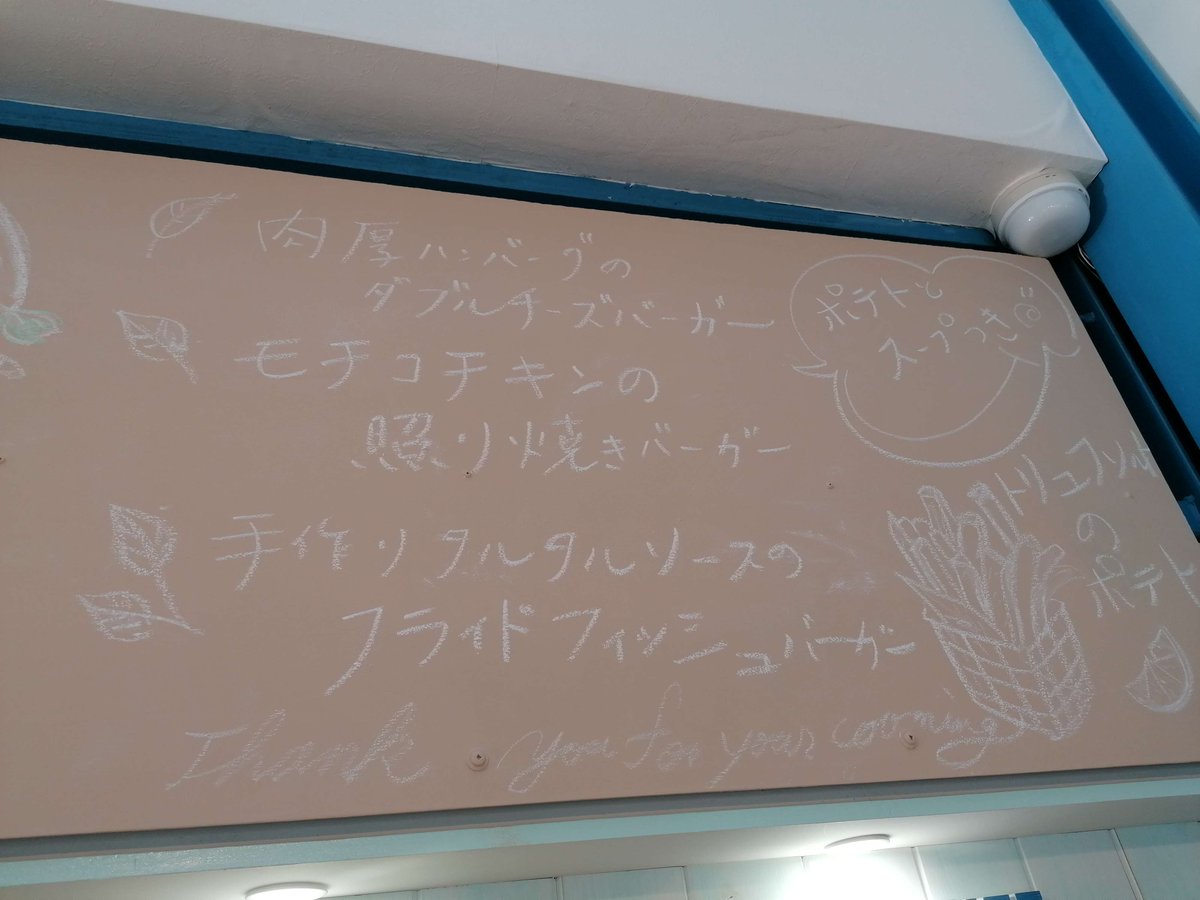 肉厚ハンバーグの
ダブルチーズバーガー
モチコチキンの
照り焼きバーガー
手作りタルタルソースの
フライドフィッシュバーガー
Thank you for your coming
ポテトと
スープつき
トリュフソルト
の
ポテト